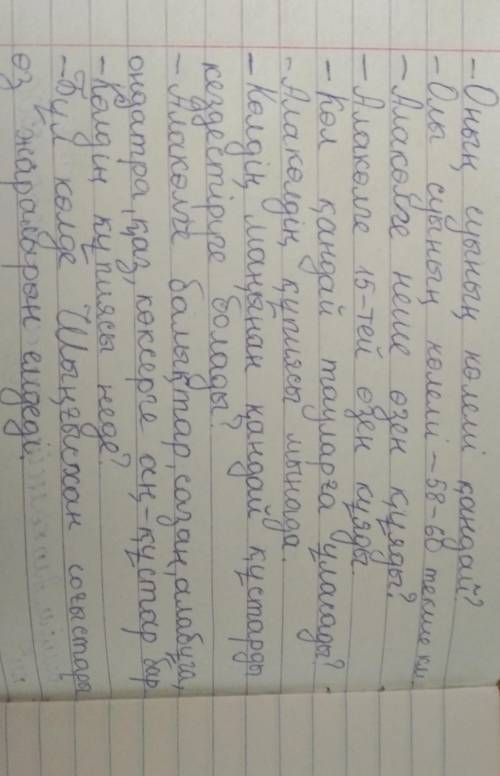 - Оның суының көлемі қандай?
- Олы суының көлемі - 58-60 текше км.
- Алакөлге неше өзен құяды?
- Алакөлге 15-тей өзен құяды.
- Көл қандай тауларға ұласады?
- Алакөлдің құпиясы мынада.
- Көлдің маңынан қандай құстарды
кездестірге болады?
- Алакөлге балықтар, сазан, алабуға,
ондатра, қаз, көксерге аң-құстар бар
- Көлдің құпиясы неде?
- Бұл көлде Шыңғысхан соғыстары
өз жараларын емдеді.